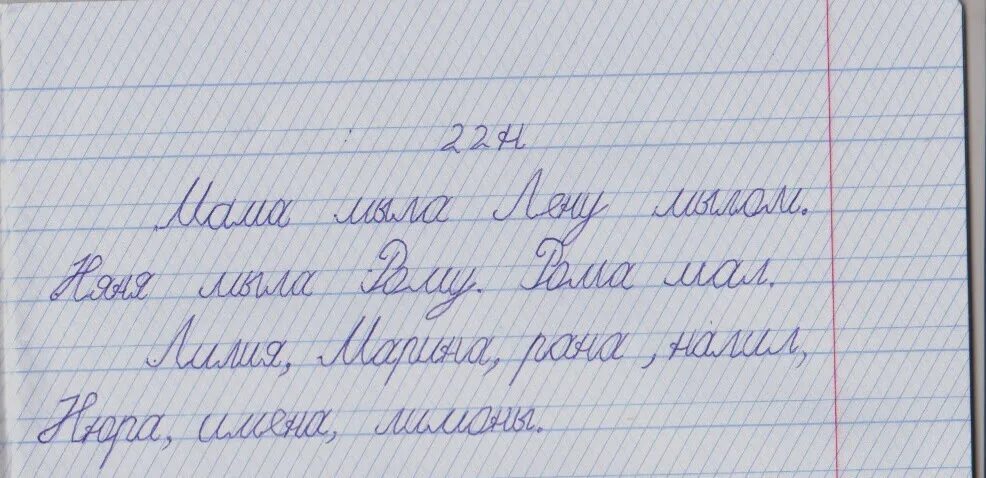 22н
Мама мыла Лену мылом.
Няня мыла Рому. Рома мал.
Лилия, Марина, рана, налил,
Нюра, имена, лимоны.